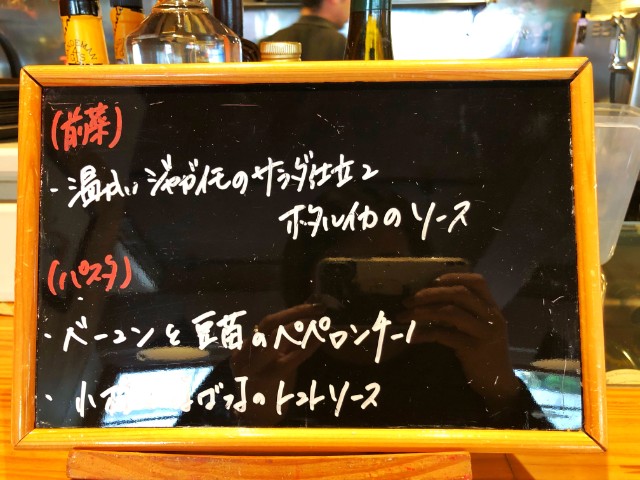 (前菜)
・温かいジャガイモのサラダ仕立て
ホタルイカのソース
(パスタ)
・ベーコンと豆苗のペペロンチーノ
・小 のトマトソース